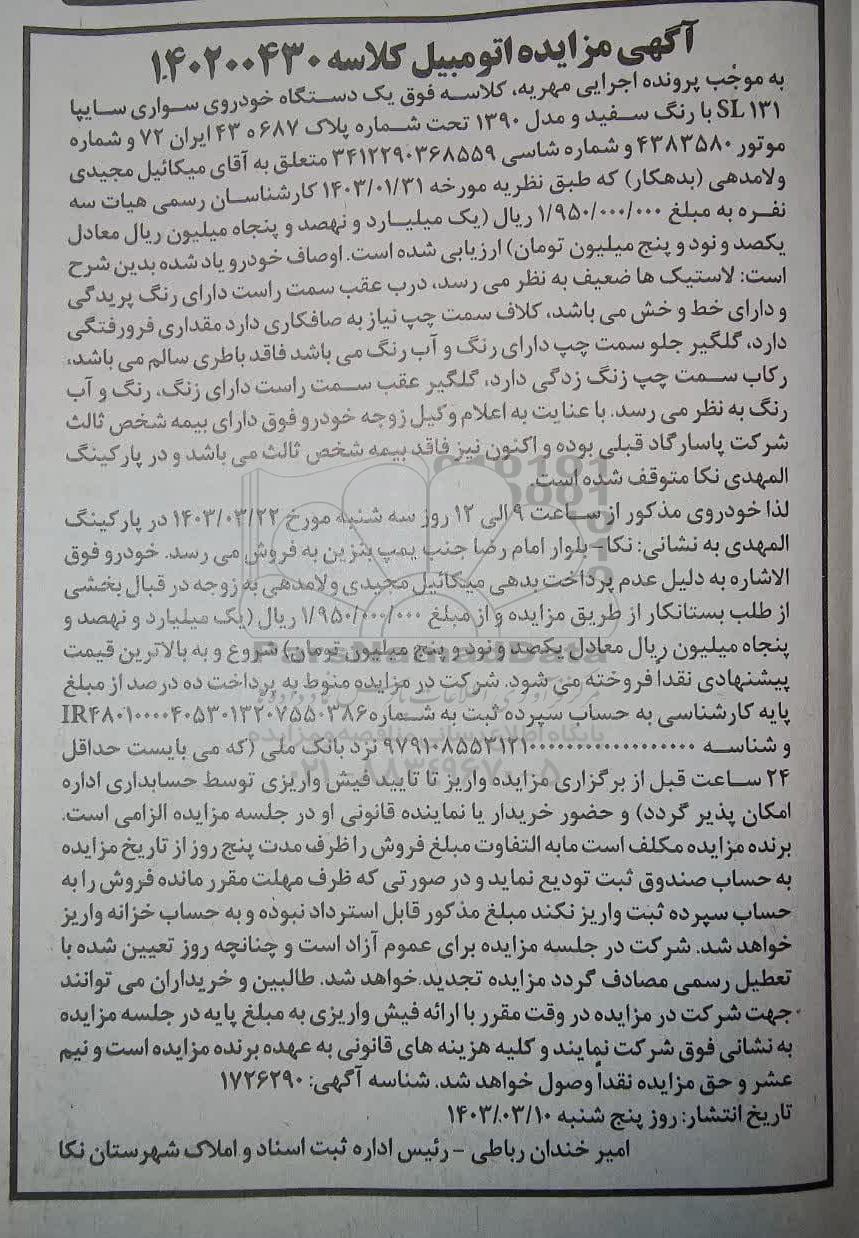 آگهی مزایده اتومبیل کلاسه ۱۴۰۲۰۰۴۳۰
به موجب پرونده اجرایی مهریه، کلاسه فوق یک دستگاه خودروی سواری سایپا
SL ۱۳۱ با رنگ سفید و مدل ۱۳۹۰ تحت شماره پلاک ۶۸۷ ه ۴۳ ایران ۷۲ و شماره
موتور ۴۳۸۳۵۸۰ و شماره شاسی ۳۴۱۲۲۹۰۳۶۸۵۵۹ متعلق به آقای میکائیل مجیدی
ولامدهی (بدهکار) که طبق نظریه مورخه ۱۴۰۳/۰۱/۳۱ کارشناسان رسمی هیات سه
نفره به مبلغ ۱/۹۵۰/۰۰۰/۰۰۰ ریال (یک میلیارد و نهصد و پنجاه میلیون ریال معادل
یکصد و نود و پنج میلیون تومان) ارزیابی شده است. اوصاف خودرو یاد شده بدین شرح
است: لاستیک ها ضعیف به نظر می رسد، درب عقب سمت راست دارای رنگ پریدگی
و دارای خط و خش می باشد، کلاف سمت چپ نیاز به صافکاری دارد مقداری فرورفتگی
دارد، گلگیر جلو سمت چپ دارای رنگ و آب رنگ می باشد فاقد باطری سالم می باشد،
رکاب سمت چپ زنگ زدگی دارد، گلگیر عقب سمت راست دارای زنگ، رنگ و آب
رنگ به نظر می رسد. با عنایت به اعلام وکیل زوجه خودرو فوق دارای بیمه شخص ثالث
شرکت پاسارگاد قبلی بوده و اکنون نیز فاقد بیمه شخص ثالث می باشد و در پارکینگ
المهدی نکا متوقف شده است.
لذا خودروی مذکور از ساعت ۹ الی ۱۲ روز سه شنبه مورخ ۱۴۰۳/۰۳/۲۲ در پارکینگ
المهدی به نشانی: نکا- بلوار امام رضا جنب پمپ بنزین به فروش می رسد. خودرو فوق
الاشاره به دلیل عدم پرداخت بدهی میکائیل مجیدی ولامدهی به زوجه در قبال بخشی
از طلب بستانکار از طریق مزایده و از مبلغ ۱/۹۵۰/۰۰۰/۰۰۰ ریال (یک میلیارد و نهصد و
پنجاه میلیون ریال معادل یکصد و نود و پنج میلیون تومان) شروع و به بالاترین قیمت
پیشنهادی نقداً فروخته می شود. شرکت در مزایده منوط به پرداخت ده درصد از مبلغ
پایه کارشناسی به حساب سپرده ثبت به شماره IR۴۸۰۱۰۰۰۰۴۰۵۳۰۱۳۲۰۷۵۵۰۳۸۶
و شناسه نزد بانک ملی (که می بایست حداقل
۲۴ ساعت قبل از برگزاری مزایده واریز تا تایید فیش واریزی توسط حسابداری اداره
امکان پذیر گردد) و حضور خریدار یا نماینده قانونی او در جلسه مزایده الزامی است.
برنده مزایده مکلف است مابه التفاوت مبلغ فروش را ظرف مدت پنج روز از تاریخ مزایده
به حساب صندوق ثبت تودیع نماید و در صورتی که ظرف مهلت مقرر مانده فروش را به
حساب سپرده ثبت واریز نکند مبلغ مذکور قابل استرداد نبوده و به حساب خزانه واریز
خواهد شد. شرکت در جلسه مزایده برای عموم آزاد است و چنانچه روز تعیین شده با
تعطیل رسمی مصادف گردد مزایده تجدید خواهد شد. طالبین و خریداران می توانند
جهت شرکت در مزایده در وقت مقرر با ارائه فیش واریزی به مبلغ پایه در جلسه مزایده
به نشانی فوق شرکت نمایند و کلیه هزینه های قانونی به عهده برنده مزایده است و نیم
عشر و حق مزایده نقداً وصول خواهد شد. شناسه آگهی: ۱۷۲۶۲۹۰
تاریخ انتشار: روز پنج شنبه ۱۴۰۳/۰۳/۱۰
امیر خندان رباطی - رئیس اداره ثبت اسناد و املاک شهرستان نکا